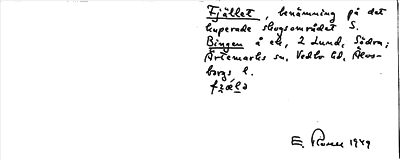 Fjället, benämning på det
kuperade skogsområdet S.
Bingen å ek. 2 Lund, Södra;
Ärtemarks sn. Vedbo hd. Älvs-
borgs l.
E. Rosell 1949